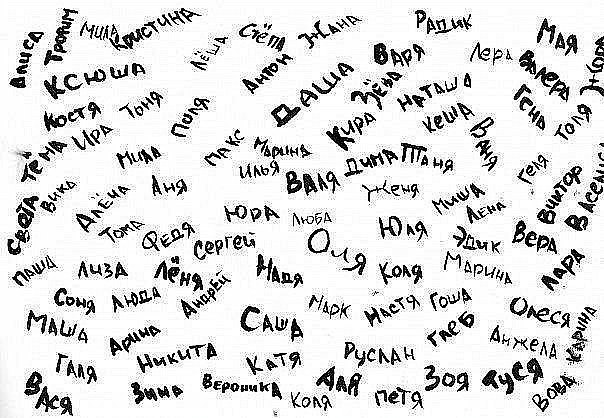 Алиса
Трофим
Мила
Кристина
Лёша
Стёпа
Жана
Радик
Варя
Лера
Мая
Валера
Жора
Ксюша
Антон
Даша
Зёва
Наташа
Гена
Толя
Костя
Тоня
Поля
Кира
Кеша
Ваня
Тёма
Ира
Мила
Макс
Марина
Илья
Валя
Дима
Таня
Геля
Виктор
Василиса
Света
Вика
Алёна
Аня
Женя
Миша
Лена
Тома
Федя
Юра
Люба
Юля
Эдик
Вера
Сергей
Оля
Паша
Лиза
Лёня
Андрей
Надя
Коля
Марина
Лара
Соня
Люда
Марк
Настя
Гоша
Олеся
Маша
Арина
Саша
Глеб
Анжела
Карина
Галя
Никита
Катя
Руслан
Вася
Зина
Вероника
Коля
Аля
Петя
Зоя
Дуся
Вова